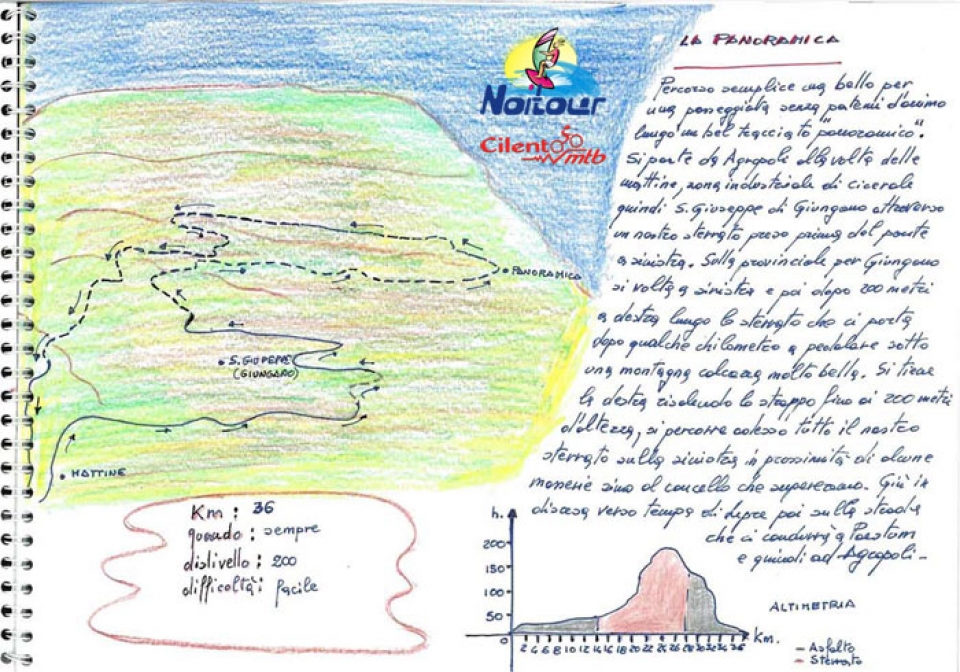 LA PANORAMICA
Noitour
Cilento mtb
Percorso semplice ma bello per
una passeggiata senza patemi d'animo
lungo un bel tracciato "panoramico".
Si parte da Agropoli alla volta delle
mattine, zona industriale di cicerale
quindi S. Giuseppe di Giungano attraverso
un nostro sterrato preso prima del ponte
a sinistra. Sulla provinciale per Giungano
si volta a sinistra e poi dopo 200 metri
a destra lungo lo sterrato che ci porta
dopo qualche chilometro a pedalare sotto
una montagna calcarea molto bella. Si tiene
la destra risalendo lo strappo fino ai 200 metri
d'altezza, si percorre adesso tutto il nostro
sterrato sulla sinistra in prossimità di alcune
masserie sino al cancello che supereremo. Giù in
discesa verso tempa di lepre poi sulla strada
che ci condurrà a Paestum
e quindi ad Agropoli -
PANORAMICA
S. GIUPEPPE
(GIUNGANO)
MATTINE
Km : 36
quando : sempre
dislivello : 200
difficoltà : facile
h.
200
150
100
50
0
2 4 6 8 10 12 14 16 18 20 22 24 26 28 30 32 34 36
Km.
ALTIMETRIA
- Asfalto
- Sterrato